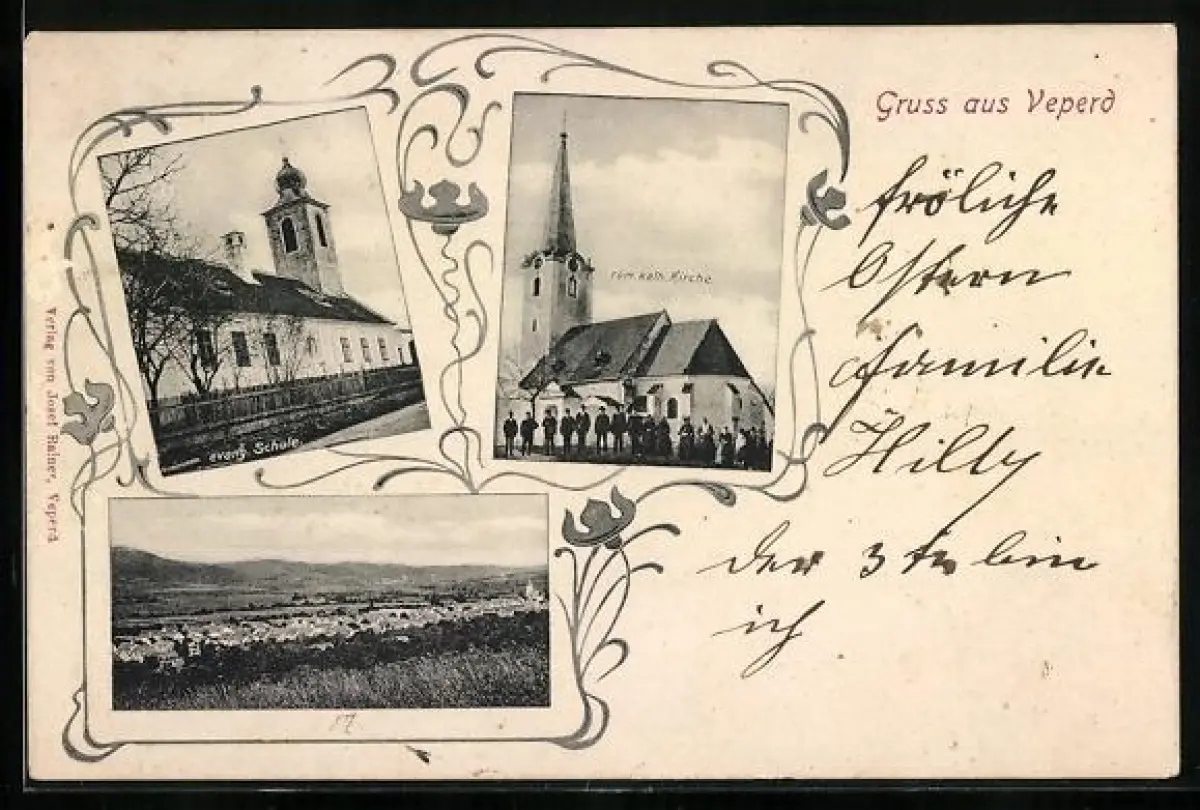 Gruss aus Veperd
fröliche
Ostern
Familie
Hilly
der 3te bin
ich
röm. kath. Kirche
evang. Schule
Verlag von Josef Hainer, Veperd